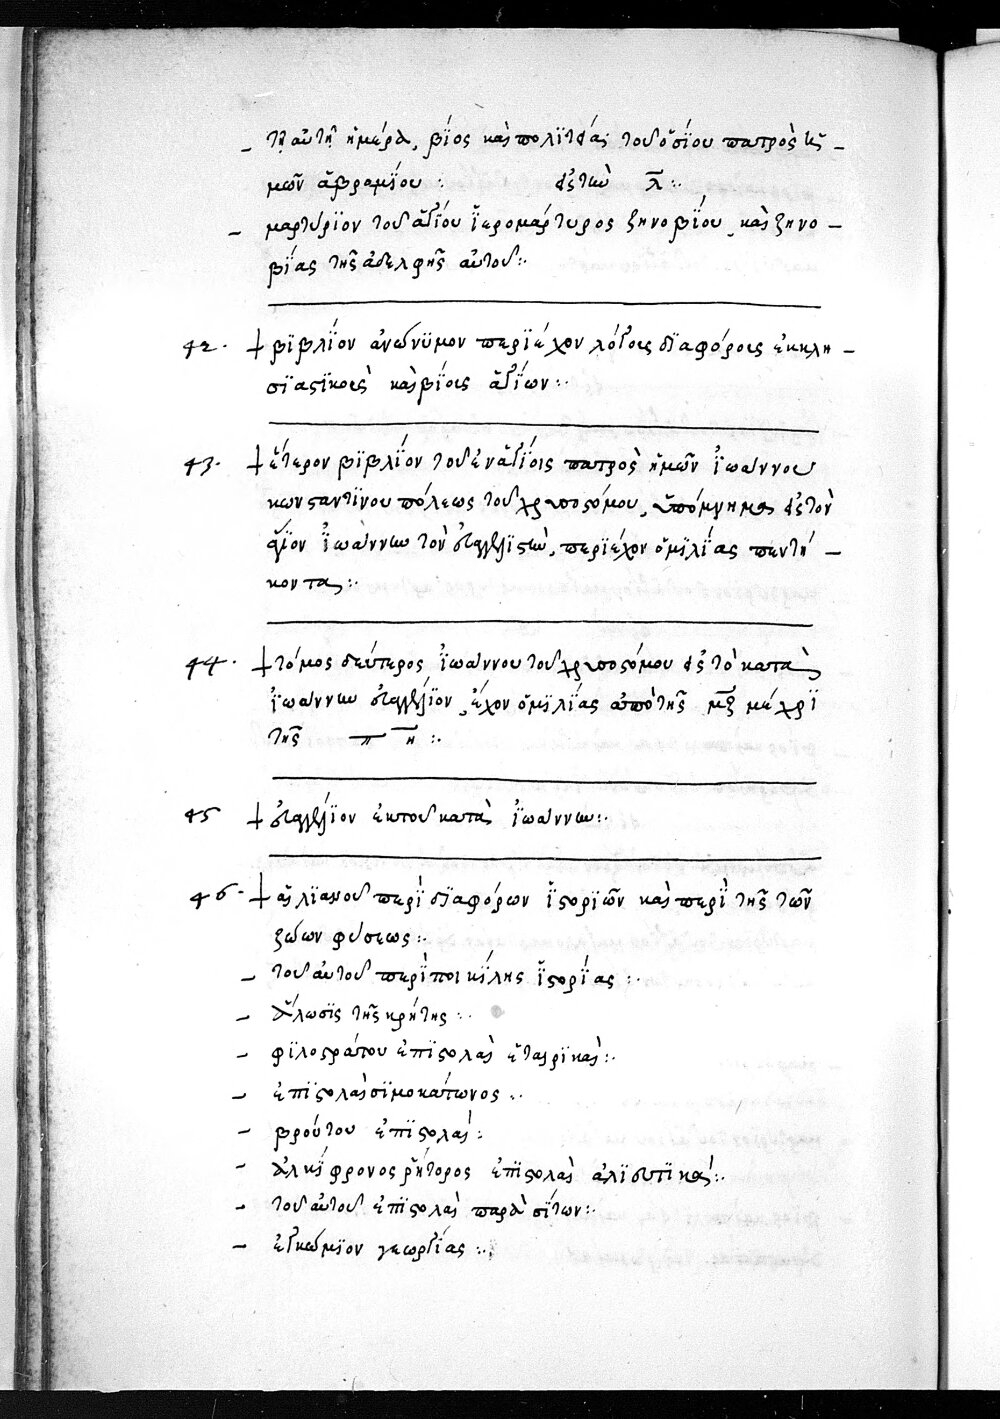 – τῆ αὐτῆ ἡμέρα, βίος καὶ πολιτεία τοῦ ὁσίου πατρὸς ἡ –
μῶν ἀβραμίου : εἰς τὴν λ :·
– μαρτύριον τοῦ ἁγίου ἱερομάρτυρος ζηνοβίου, καὶ ζηνο –
βίας τῆς ἀδελφῆς αὐτοῦ :·
42· + βϊβλΐον ἀνώνϋμον περιέχον λόγοις δϊαφόροις ἐκκλη –
σϊαςϊκοῖς καὶ βίοις ἁγΐων :·
43· + ἕτερον βϊβλΐον τοῦ ἐν ἁγΐοις πατρὸς ἡμῶν ἰωάννου
κωνςαντϊνουπόλεως τοῦ χρυσοςόμου, ὑπόμνημα εἰς τὸν
ἅγϊον ἰωάννην τὸν εὐαγγελϊςὴν, περϊέχον ὁμϊλΐας πεντή –
κοντα :·
44· + τόμος δεύτερος ἰωάννου τοῦ χρυσοςόμου εἰς τὸ κατὰ
ἰωάννην εὐαγγέλϊον, ἔχον ὁμϊλΐας ἀπὸ τῆς μξ μέχρϊ
τῆς π η :·
45 + εὐαγγέλϊον ἐκ τοῦ κατὰ ἰωάννην :·
46· + αἰλϊανοῦ περὶ δϊαφόρων ἱςορϊῶν καὶ περὶ τῆς τῶν
ζώων φύσεως :·
– τοῦ αὐτοῦ περὶ ποικΐλης ἱςορΐας :·
– ἅλωσϊς τῆς κρήτης :·
– φϊλοςράτου ἐπϊςολαὶ ἑταιρϊκαὶ :·
– ἐπϊςολαὶ σϊμοκάτωνος :·
– βρούτου ἐπϊςολαὶ :
– ἀλκΐφρονος ῥήτορος ἐπϊςολαὶ ἁλϊευτϊκαὶ :·
– τοῦ αὐτοῦ ἐπϊςολαὶ παρασΐτων :·
– ἐγκώμϊον γεωργΐας :·